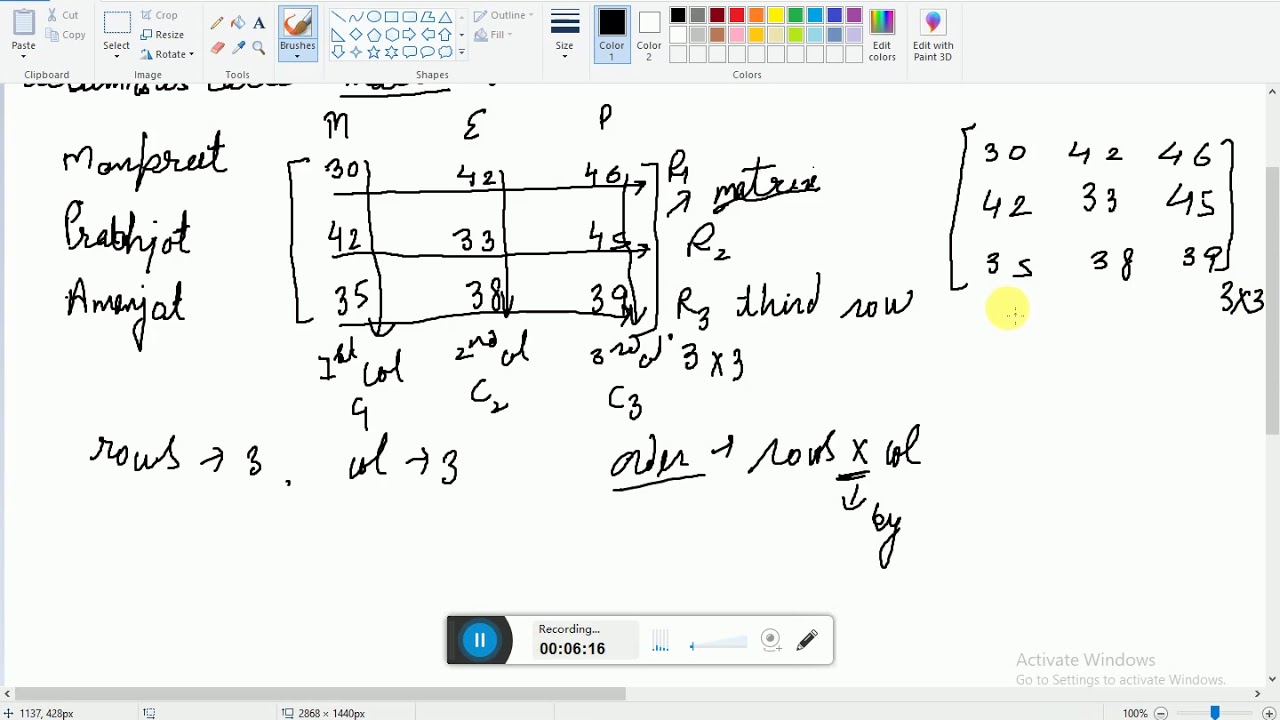 Paste
Cut
Copy
Clipboard
Select
Crop
Resize
Rotate
Image
Tools
Brushes
Shapes
Outline
Fill
Size
Color 1
Color 2
Colors
Edit colors
Edit with Paint 3D
M E P
Manpreet 30 42 46 R1
matrix
Prabhjot 42 33 45 R2
Amanjot 35 38 39 R3 third row
1st col 2nd col 3rd col 3 x 3
C1 C2 C3
30 42 46
42 33 45
35 38 39
3x3
rows → 3, col → 3 order → rows x col
by
Recording...
00:06:16
Activate Windows
Go to Settings to activate Windows.
1137, 428px
2868 × 1440px
100%